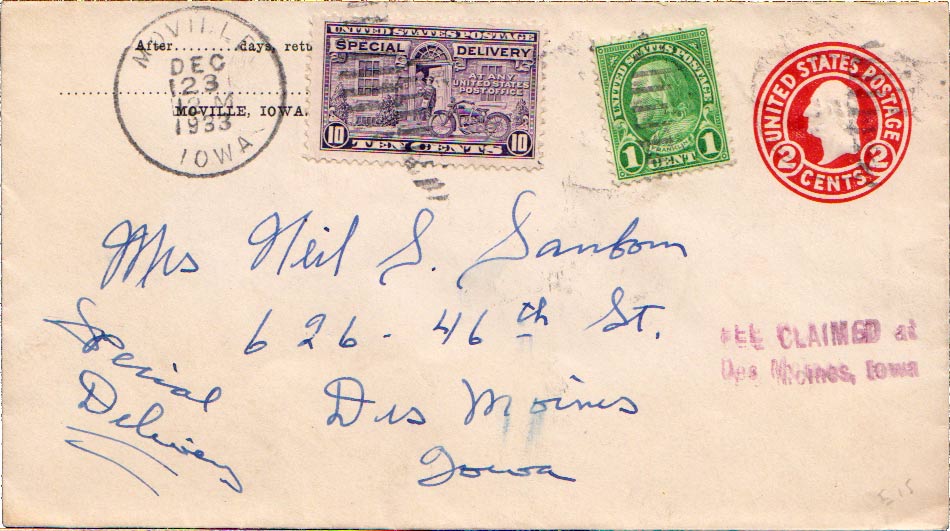 MOVILLE
DEC
23
1933
IOWA
After........days, retu
MOVILLE, IOWA.
UNITED STATES POSTAGE
SPECIAL DELIVERY
AT ANY
UNITED STATES
POST OFFICE
10 TEN CENTS 10
UNITED STATES POSTAGE
FRANKLIN
1 CENT 1
UNITED STATES POSTAGE
2 CENTS 2
Mrs Neil S. Sanborn
626 - 46th St.
Des Moines
Iowa
Special
Delivery
FEE CLAIMED at
Des Moines, Iowa
E15